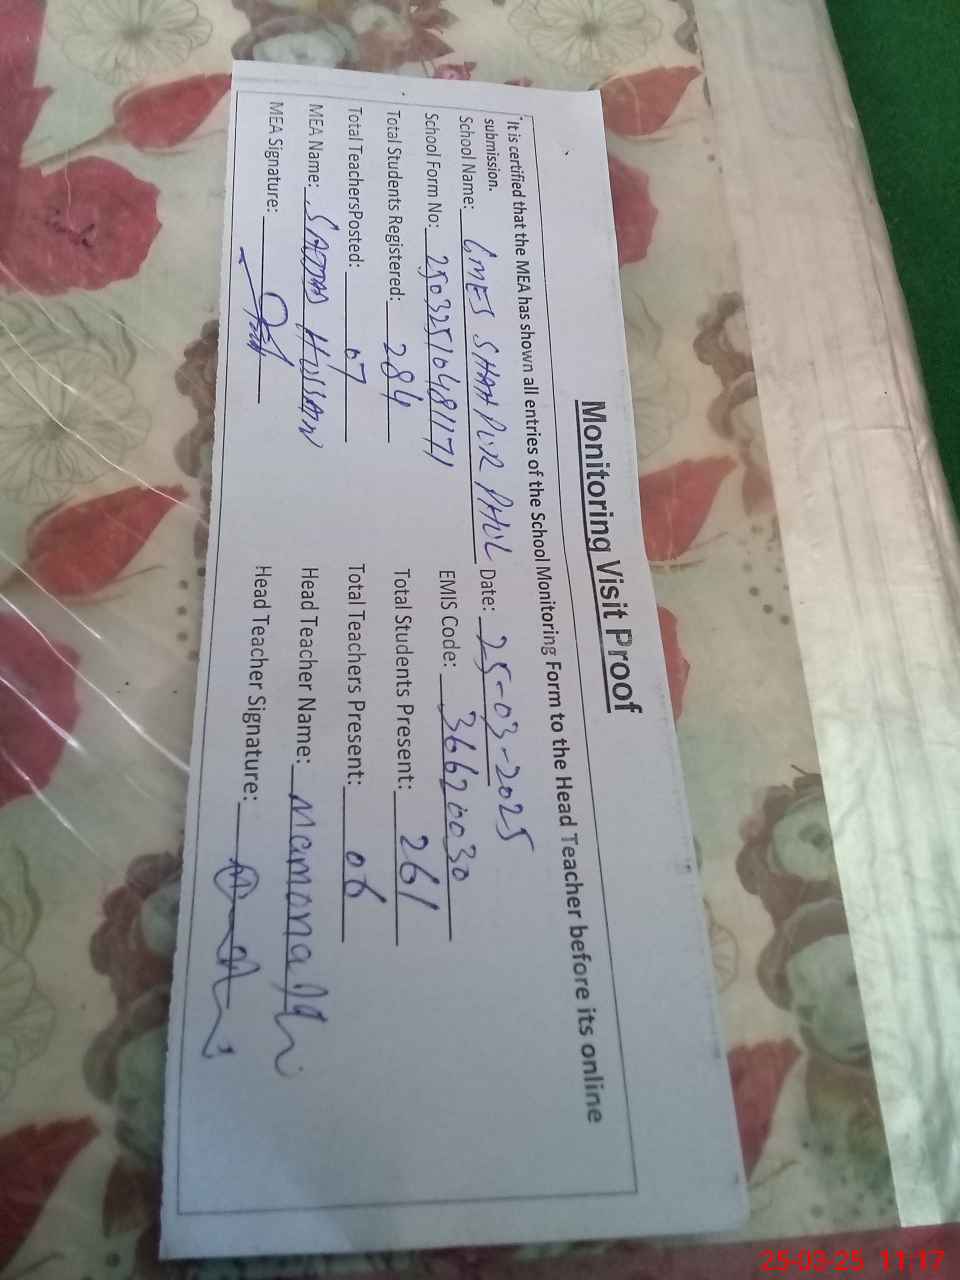 Monitoring Visit Proof
"It is certified that the MEA has shown all entries of the School Monitoring Form to the Head Teacher before its online
submission.
School Name: GMES SHAH PUR PHUL Date: 25-03-2025
School Form No: 25032510481171 EMIS Code: 36620030
Total Students Registered: 284 Total Students Present: 261
Total TeachersPosted: 07 Total Teachers Present: 06
MEA Name: SADDAM HUSSAIN Head Teacher Name: Mamona
MEA Signature: Head Teacher Signature:
25-03-25 11:17